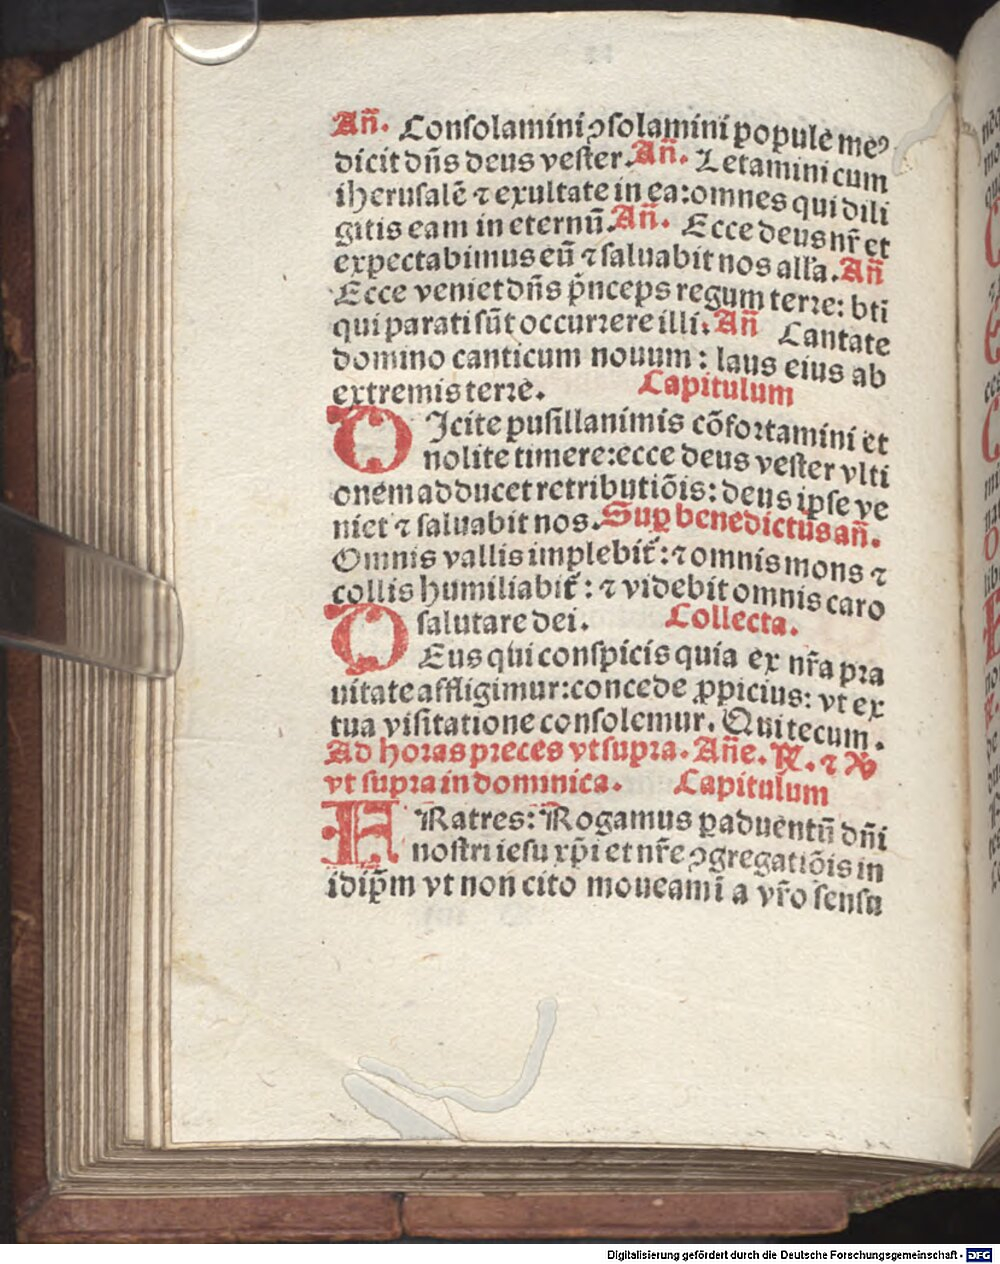 Añ. Consolamini ꝯsolamini popule meꝰ
dicit dn̄s deus vester. Añ. Letamini cum
iherusalē ⁊ exultate in ea: omnes qui dili
gitis eam in eternū. Añ. Ecce deus nr̄ et
expectabimus eū ⁊ saluabit nos all'a. Añ
Ecce veniet dn̄s p̄nceps regum terre: bti
qui parati sūt occurrere illi. Añ Cantate
domino canticum nouum: laus eius ab
extremis terre. Capitulum
DIcite pusillanimis cōfortamini et
nolite timere: ecce deus vester vlti
onem adducet retributiōis: deus ipse ve
niet ⁊ saluabit nos. Suꝑ benedictus añ.
Omnis vallis implebit᷑: ⁊ omnis mons ⁊
collis humiliabit᷑: ⁊ videbit omnis caro
salutare dei. Collecta.
DEus qui conspicis quia ex nr̄a pra
uitate affligimur: concede ꝓpicius: vt ex
tua visitatione consolemur. Qui tecum.
Ad horas preces vt supra. Añe. ℟. ⁊ ℣
vt supra in dominica. Capitulum
FRatres: Rogamus ꝑ aduentū dn̄i
nostri iesu xp̄i et nr̄e ꝯgregatiōis in
idip̄m vt non cito moueamī a vr̄o sensu
Digitalisierung gefördert durch die Deutsche Forschungsgemeinschaft - DFG